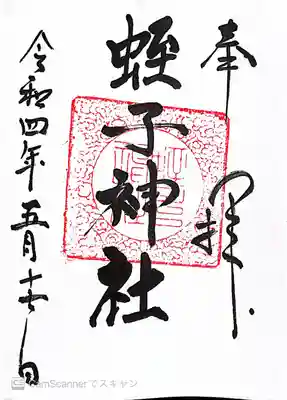 奉拝
蛭子神社
令和四年五月十七日
CamScannerでスキャン